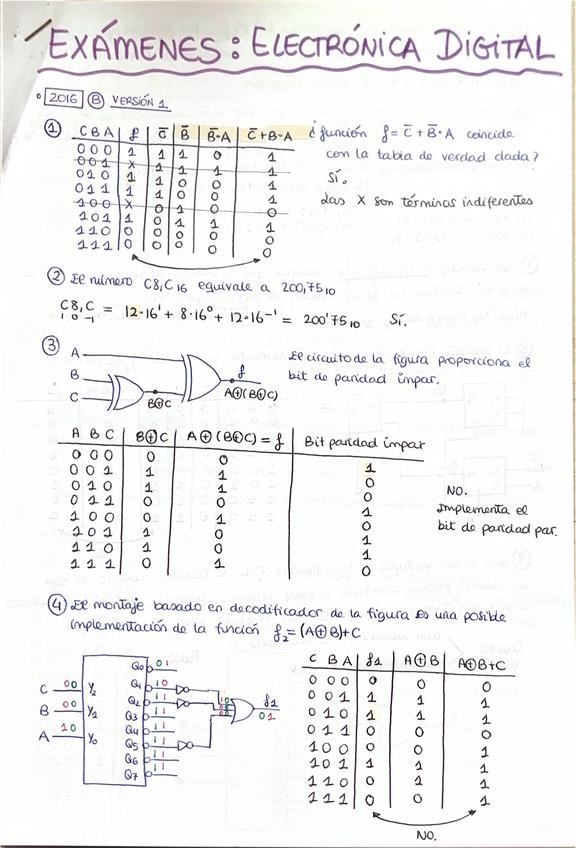 EXÁMENES: ELECTRÓNICA DIGITAL
2016 B VERSIÓN 1
1
C B A f C̅ B̅ B̅·A C̅+B·A
0 0 0 1 1 1 0 1
0 0 1 X 1 1 1 1
0 1 0 1 1 0 0 1
0 1 1 1 1 0 0 1
1 0 0 X 0 1 0 0
1 0 1 1 0 1 1 1
1 1 0 0 0 0 0 0
1 1 1 0 0 0 0 0
¿función f = C̅ + B̅·A coincide
con la tabla de verdad dada?
SÍ.
Las X son términos indiferentes
2 El número C8,C16 equivale a 200,7510
C8,C = 12·16¹ + 8·16⁰ + 12·16⁻¹ = 200'7510 SÍ.
1 0 -1
3
A
B
C
B⊕C
f
A⊕(B⊕C)
El circuito de la figura proporciona el
bit de paridad impar.
A B C B⊕C A⊕(B⊕C) = f Bit paridad impar
0 0 0 0 0 1
0 0 1 1 1 0
0 1 0 1 1 0
0 1 1 0 0 1
1 0 0 0 1 0
1 0 1 1 0 1
1 1 0 1 0 1
1 1 1 0 1 0
NO.
Implementa el
bit de paridad par.
4 El montaje basado en decodificador de la figura es una posible
implementación de la función f2 = (A⊕B)+C
C 00 Y2
B 00 Y1
A 10 Y0
Q0 01
Q1 10
Q2 11
Q3 11
Q4 11
Q5 11
Q6 11
Q7 11
f1
01
C B A f1 A⊕B A⊕B+C
0 0 0 0 0 0
0 0 1 1 1 1
0 1 0 1 1 1
0 1 1 0 0 0
1 0 0 0 0 1
1 0 1 1 1 1
1 1 0 0 1 1
1 1 1 0 0 1
NO.